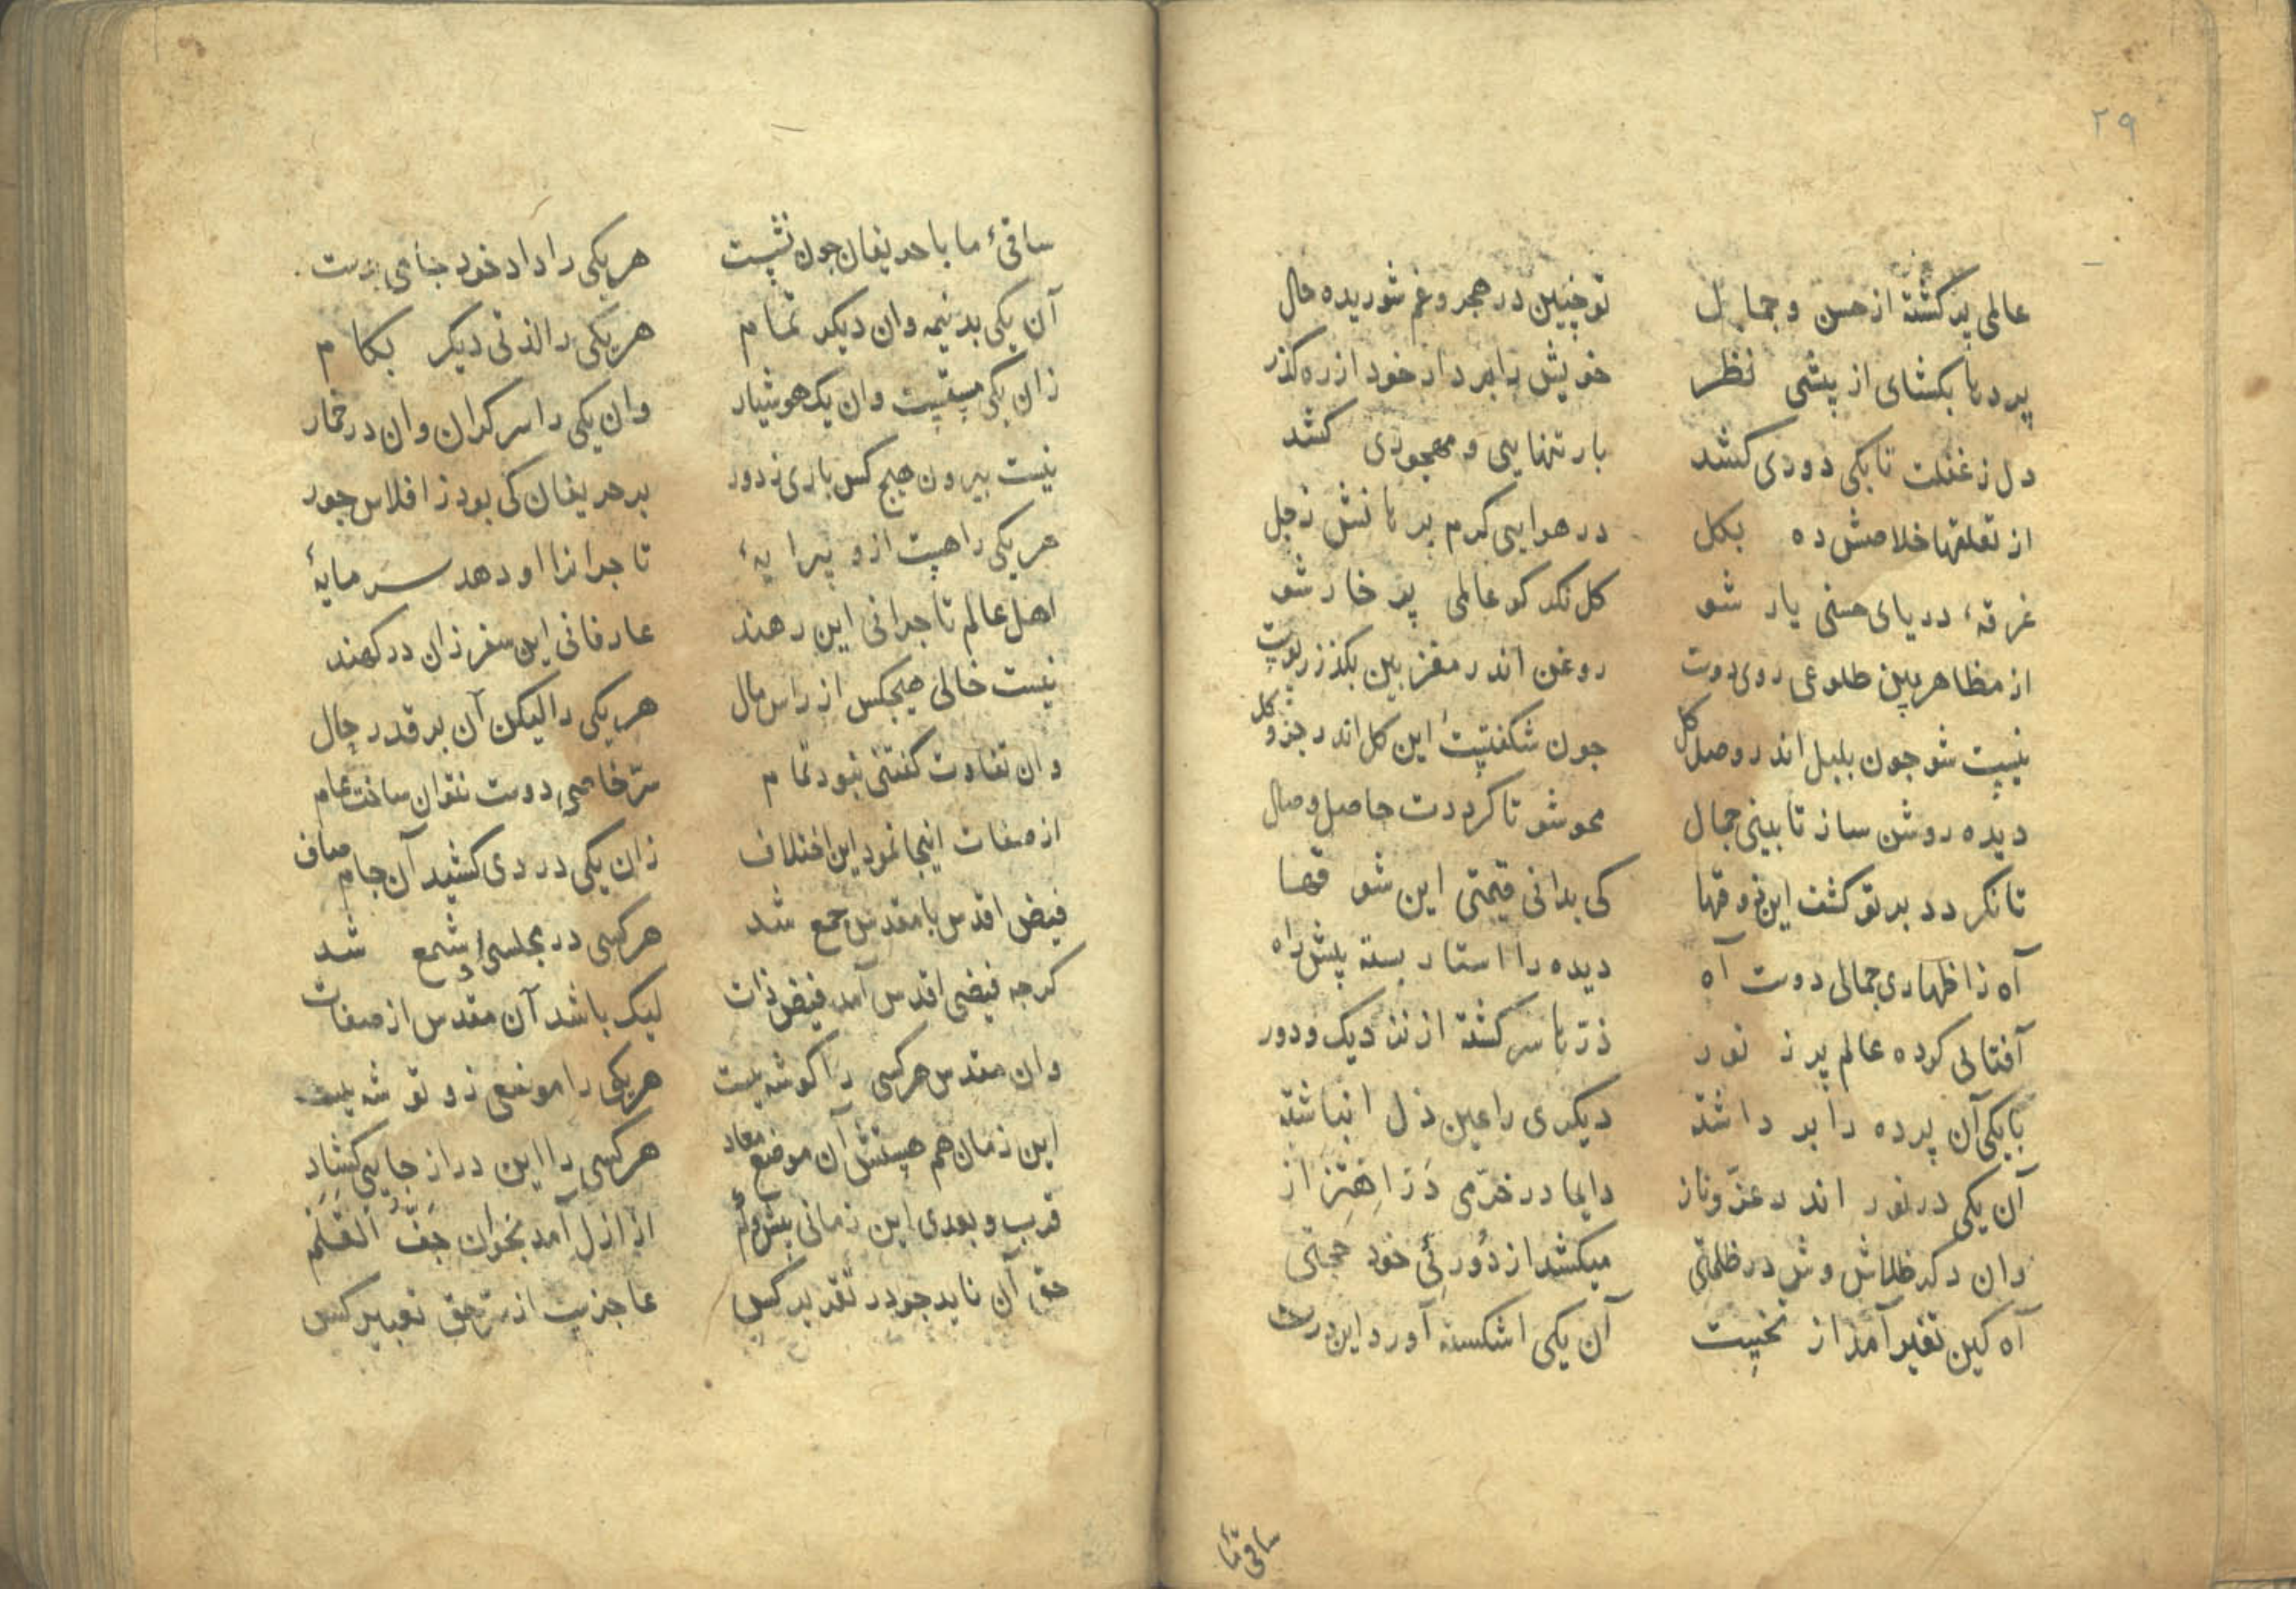 ٢٩
عالمی پر کشته از حسن و جمال تو چنین در هجر و غم شوریده حال
پرده‌ها بکشای از پیشی نظر خویش را بردار خود از ره کذر
دل ز غفلت تا بکی دوری کشد بار تنهایی و مهجوری کشد
از تعلقها خلاصش ده بکل در هوایی کرم پرانش ز جل
غرقهٔ دریای حسنی یار شو کل نکر کو عالمی پر خار شو
از مظاهر بین طلوعی روی دوست روغن اندر مغز بین بکذر ز پوست
نیست شو جون بلبل اندر وصل کل جون شکفتست این کل اندر جزو کل
دیده روشن ساز تا بینی جمال محو شو تا کرددت حاصل وصال
تا نکردد بر تو کشف این ذوقها کی بدانی قیمتی این شوقها
آه ز اظهاری جمالی دوست آه دیده را استار بسته پیش راه
آفتابی کرده عالم پر ز نور ذرّها سرکشته از نزدیک و دور
با یکی آن پرده را بر داشته دیکری را عین ذل انباشته
آن یکی در نور اندر عزّ و ناز دایما در خرّمی دَر اِهتِزاز
وان دکر در ظلمتی میکشد از دُورئِی خود
آه کین تغیر آمد از نخست آن یکی اشکسته آورد این درست
ساقئ ما
ساقیٔ ما با حریفان جون نشست هر یکی را داد خود جامی بدست
آن یکی بد نیمه وان دیکر تمام هر یکی را لذتی دیکر بکام
زان یکی مستست وان یک هوشیار وان یکی را سر کران وان در خمار
نیست بیرون هیج کس باری ز دور بر حریفان کی بود ز افلاس جور
هر یکی را هست ازو پیرایهٔ تاجرانرا او دهد سرمایهٔ
اهل عالم تاجرانی این رهند عارفانی این سفر زان درکهند
نیست خالی هیجکس از راس مال هر یکی را لیکن آن بر قدر حال
وان تفاوت کفتنی نبود تمام سرّ خاصی دوست نتوان ساخت عام
از صفات اینجا نمود این اختلاف زان یکی دردی کشید آن جام صاف
فیض اقدس با مقدس جمع شد هر کسی در مجلسی او شمع شد
کرجه فیضی اقدس آمد فیض ذات لیک باشد آن مقدس از صفات
وان مقدس هر کسی را کوشه‌یست هر یکی را موضعی زو توشه‌یست
این زمان هم هستش آن موضع معاد هر کسی را این در از جایی کشاد
قرب و بعدی این زمانی بیش و کم از ازل آمد بخوان جَفَّ القَلَم
حق آن ناید جو در تقدیر کس عاجزیست از سرّ حق تعبیر کس